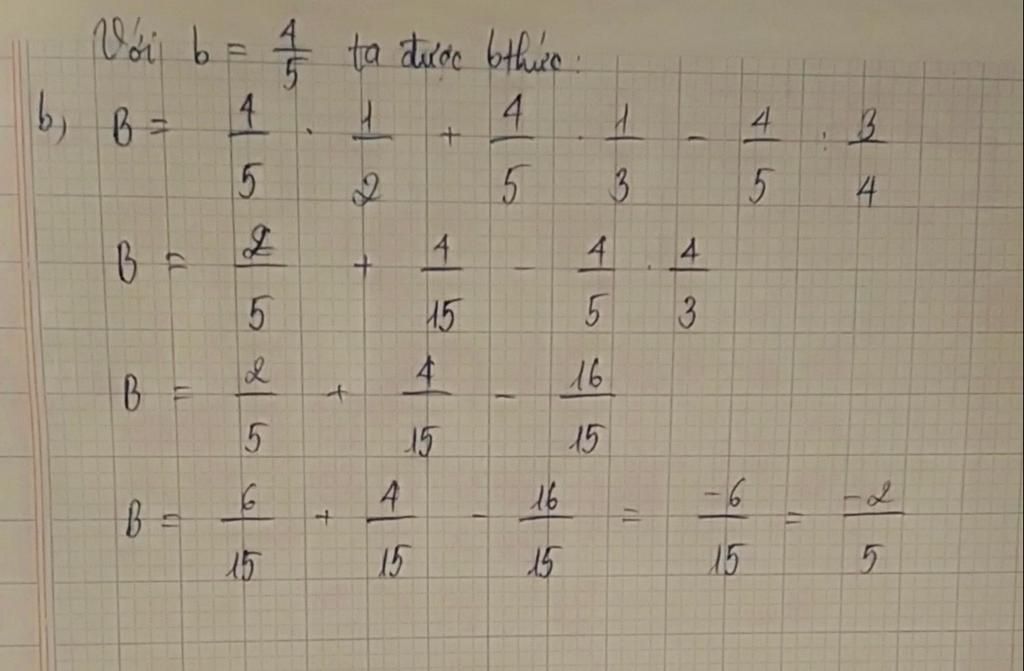 Với b = 4/5 ta được bthức:
b) B = 4/5 . 1/2 + 4/5 . 1/3 - 4/5 : 3/4
B = 2/5 + 4/15 - 4/5 . 4/3
B = 2/5 + 4/15 - 16/15
B = 6/15 + 4/15 - 16/15 = -6/15 = -2/5